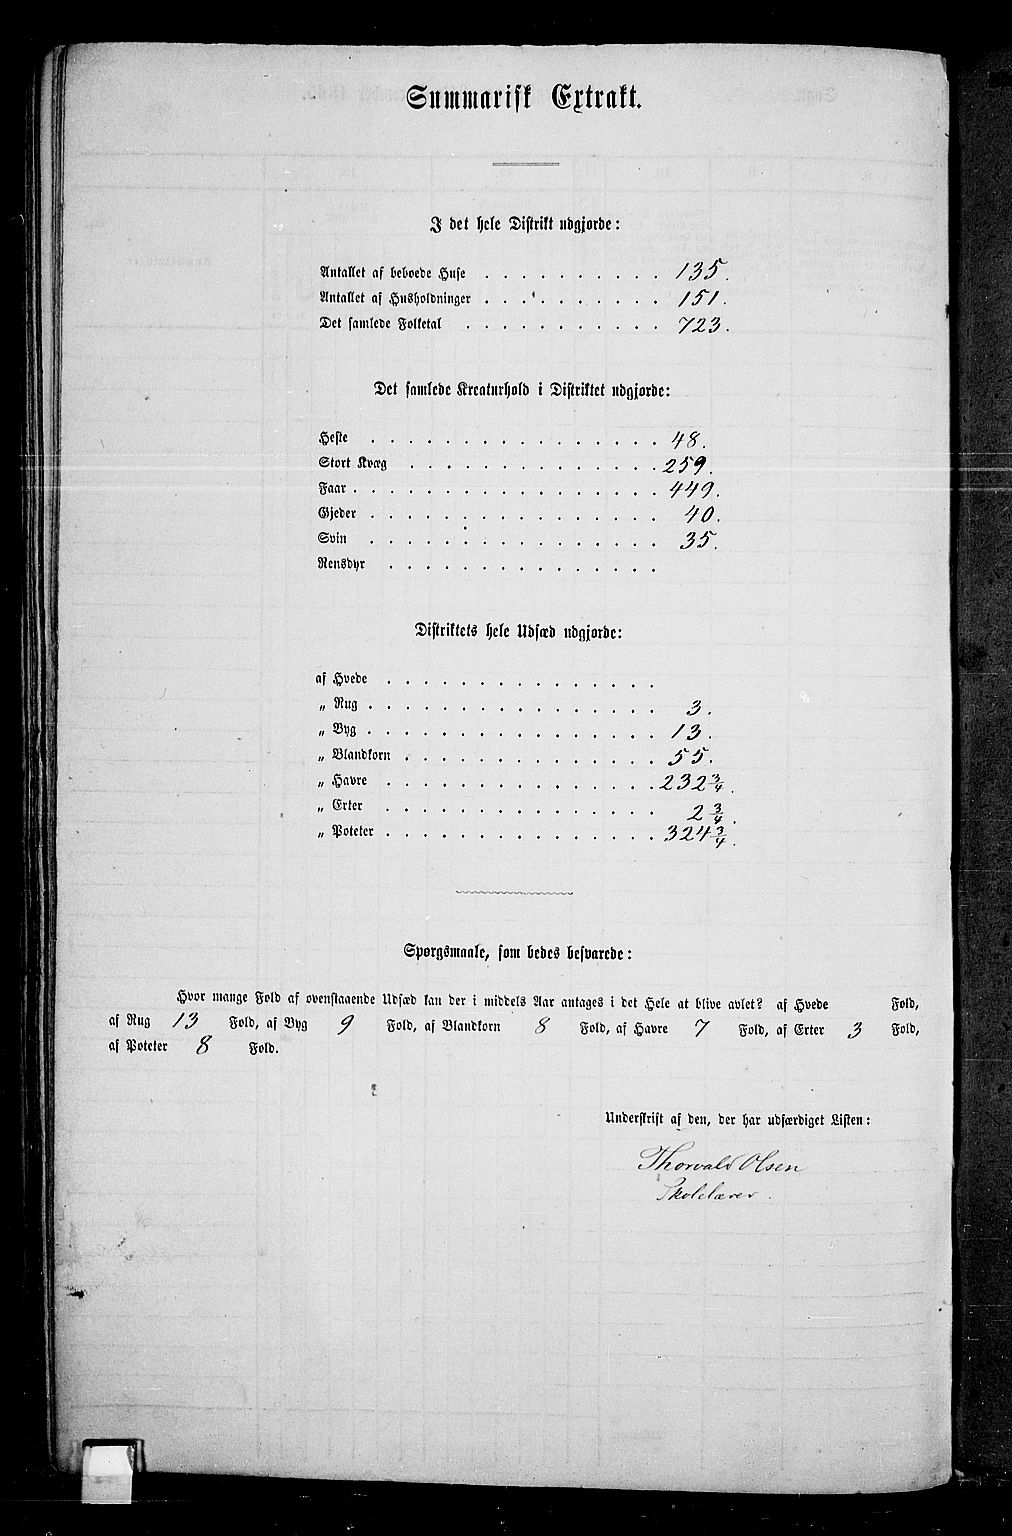 Summarisk Extrakt.
I det hele Distrikt udgjorde:
Antallet af beboede Huse . . . . . . . . . . 135.
Antallet af Husholdninger . . . . . . . . . . 151.
Det samlede Folketal . . . . . . . . . . . 723.
Det samlede Kreaturhold i Distriktet udgjorde:
Heste . . . . . . . . . . . . . . . . 48.
Stort Kvæg . . . . . . . . . . . . . . 259.
Faar . . . . . . . . . . . . . . . . . 449.
Gjeder . . . . . . . . . . . . . . . . 40.
Svin . . . . . . . . . . . . . . . . 35.
Rensdyr . . . . . . . . . . . . . . .
Distriktets hele Udsæd udgjorde:
af Hvede . . . . . . . . . . . . . . .
„ Rug . . . . . . . . . . . . . . . . 3.
„ Byg . . . . . . . . . . . . . . . . 13.
„ Blandkorn . . . . . . . . . . . . . . 55.
„ Havre . . . . . . . . . . . . . . . 232 3/4.
„ Erter . . . . . . . . . . . . . . . 2 3/4.
„ Poteter . . . . . . . . . . . . . . . 324 3/4.
Spørgsmaale, som bedes besvarede:
Hvor mange Fold af ovenstaaende Udsæd kan der i middels Aar antages i det Hele at blive avlet? af Hvede Fold,
af Rug 13 Fold, af Byg 9 Fold, af Blandkorn 8 Fold, af Havre 7 Fold, af Erter 3 Fold,
af Poteter 8 Fold.
Underskrift af den, der har udfærdiget Listen:
Thorvald Olsen
Skolelærer.